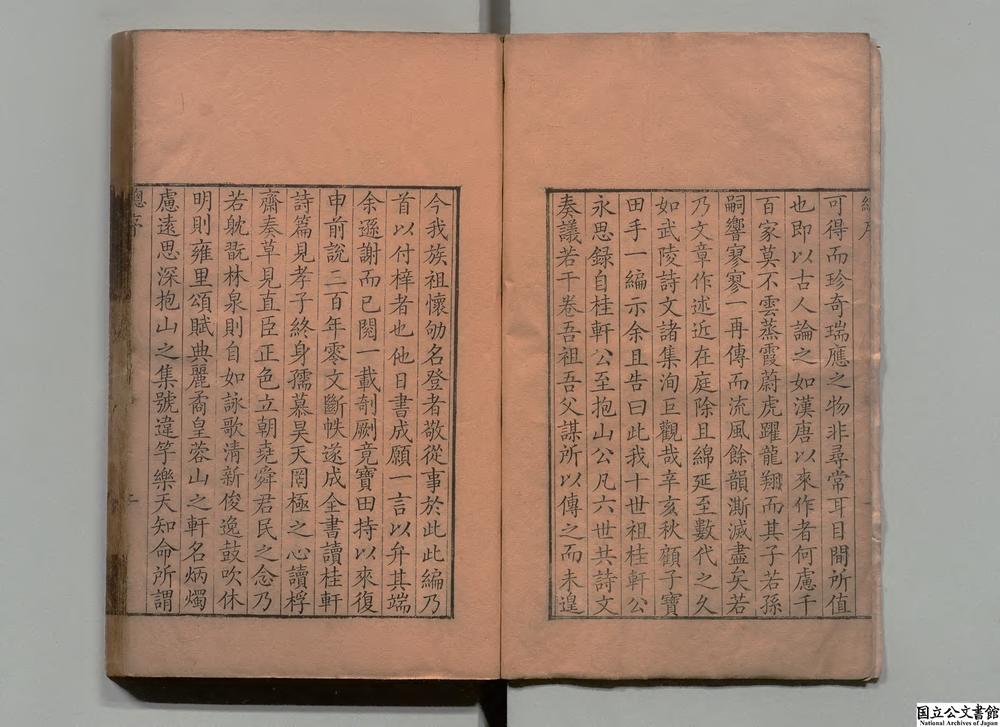 可得而珍奇瑞應之物非尋常耳目間所值
也即以古人論之如漢唐以來作者何慮千
百家莫不雲蒸霞蔚虎躍龍翔而其子若孫
嗣響寥寥一再傳而流風餘韻澌滅盡矣若
乃文章作述近在庭除且綿延至數代之久
如武陵詩文諸集洵巨觀哉辛亥秋顧子寶
田手一編示余且告曰此我十世祖桂軒公
永思録自桂軒公至抱山公凡六世共詩文
奏議若干卷吾祖吾父謀所以傳之而未遑
今我族祖懷劬名登者敬從事於此此編乃
首以付梓者也他日書成願一言以弁其端
余遜謝而已閱一載剞劂竟寶田持以來復
申前說二百年零文斷帙遂成全書讀桂軒
詩篇見孝子終身孺慕昊天罔極之心讀桴
齋奏草見直臣正色立朝堯舜君民之念乃
若躭翫林泉則自如詠歌清新俊逸鼓吹休
明則雍里頌賦典麗矞皇蓉山之軒名炳燭
慮遠思深抱山之集號違竽樂天知命所謂
總序
二
国立公文書館
National Archives of Japan